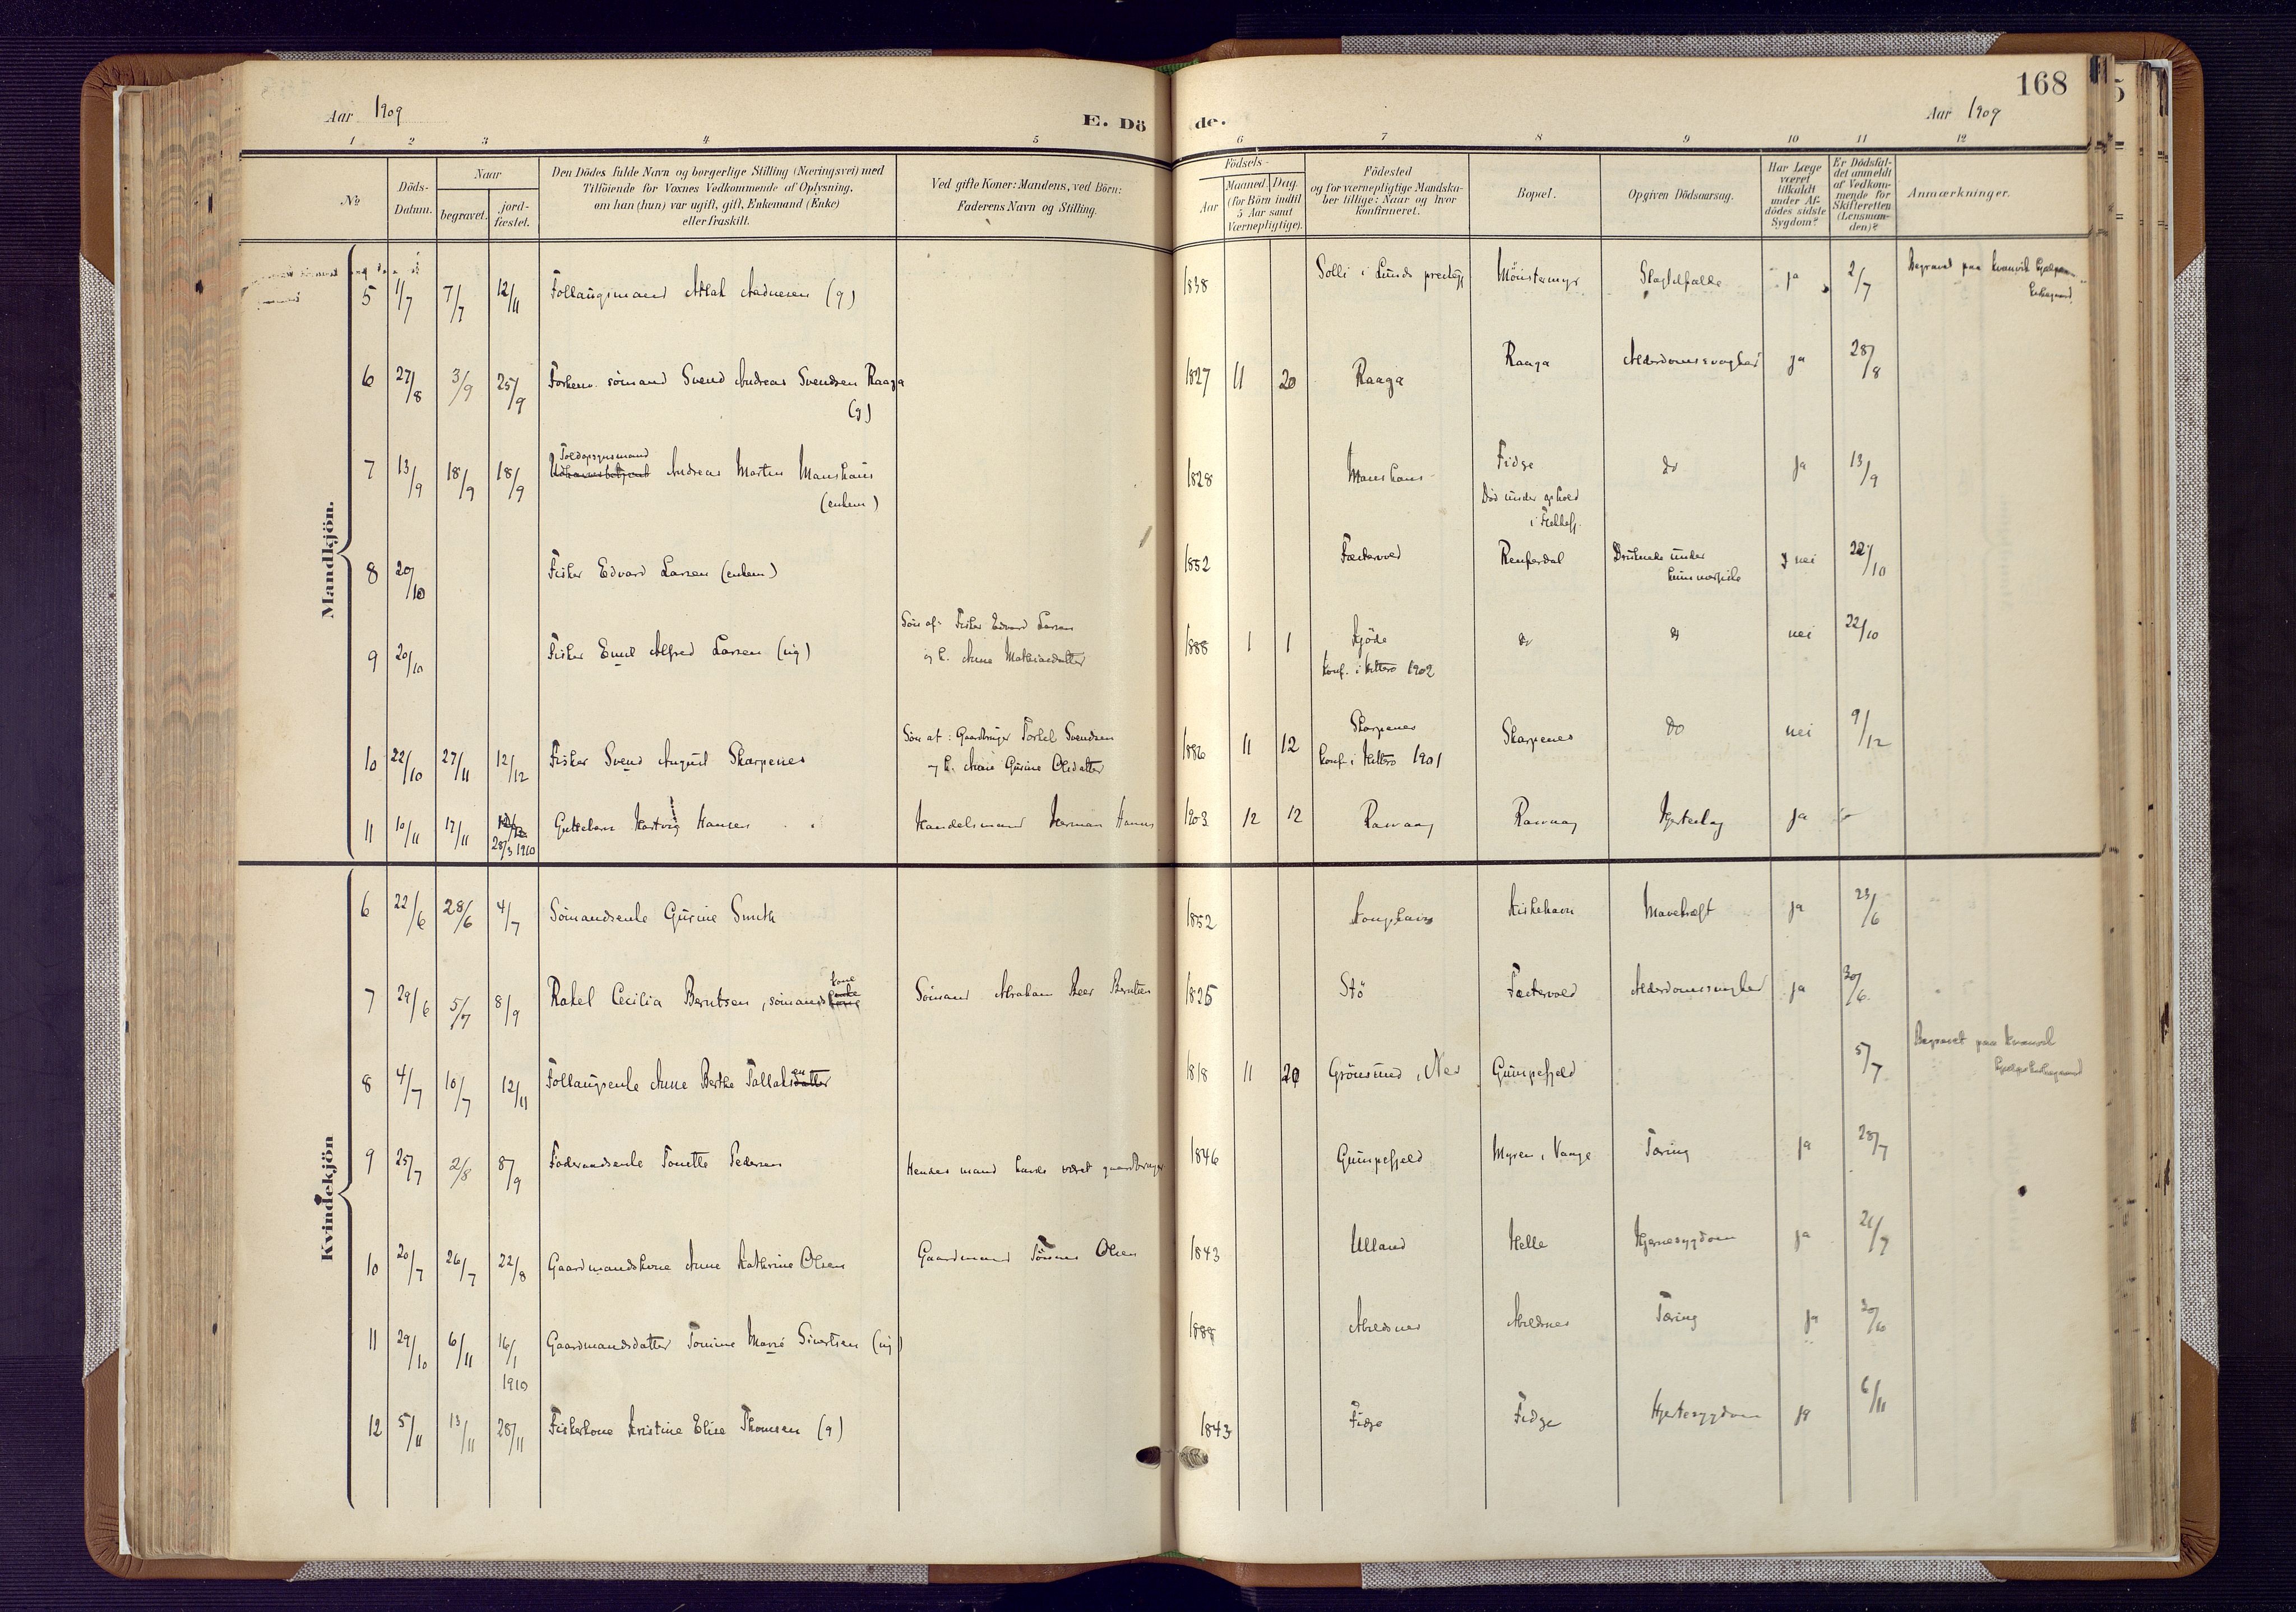 168
Aar 1909
E. Döde.
Aar 1909
1 2 3 4 5 6 7 8 9 10 11 12
No
Döds-Datum.
Naar
begravet.
jord-fæstet.
Den Dödes fulde Navn og borgerlige Stilling (Næringsvei) med
Tilföiende for Voxnes Vedkommende af Oplysning,
om han (hun) var ugift, gift, Enkemand (Enke)
eller fraskilt.
Ved gifte Koner: Mandens, ved Börn:
Faderens Navn og Stilling.
Födsels-
Aar
Maaned. Dag.
(for Börn indtil
5 Aar samt
Værnepligtige).
Födested
og for værnepligtige Mandska-
ber tillige: Naar og hvor
konfirmeret.
Bopæl.
Opgiven Dödsaarsag.
Har Læge
været
tilkaldt
under Af-
dödes sidste
Sygdom?
Er Dödsfal-
det anmeldt
af Vedkom-
mende for
Skifteretten
(Lensman-
den)?
Anmærkninger.
Mandkjön.
5 1/7 7/7 12/11 Follaugsmand Atlak Aadnesen (g) 1838 Solli i Lunds prestegj Mönstermyr Slagtilfælde ja 2/7 Begravet paa Kvanvik Hjelpe-
kirkegaard
6 27/8 3/9 25/9 Forhenv. sömand Svend Andreas Svendsen Raaga
(g) 1827 11 20 Raaga Raaga Alderdomssvaghed ja 28/8
7 13/9 18/9 18/9 Toldopsynsmand
Andreas Morten Manshaus
(enkem) 1828 Manshaus Fidge
Död under ophold
i do ja 13/9
8 20/10 Fisker Edvard Larsen (enkem) 1852 Fædervod Renferdal Druknede under
nei 22/10
9 20/10 Fisker Emil Alfred Larsen (ug) Sön af: Fisker Edvard Larsen
og h. Anne Mathiasdatter 1888 1 1
konf. i Hitterö 1902 do do nei 22/10
10 22/10 27/11 12/12 Fisker Svend August Skarpenes Sön af: Gaardbruger Torkel Svendsen
og h. Anne Gurine Olsdatter 1886 11 12 Skarpenes
konf. i Hitterö 1901 Skarpenes do nei 9/12
11 10/11 17/11 28/3 1910 Guttebarn Hartvig Hansen Handelsmand Herman Hansen 1903 12 12 Rasvaag Rasvaag Hjerteslag ja
Kvindekjön
6 22/6 28/6 4/7 Sömandsenke Gurine Smith 1852 Kongshavn Kirkehavn Mavekræft ja 23/6
7 29/6 5/7 8/9 Rakel Cecilia Berntsen, sömands kone Sömand Abraham Beer Berntsen 1825 Stö Fædervod Alderdomssvaghed ja 30/6
8 4/7 10/7 12/11 Follaugsenke Anne Berthe Tallaksen 1818 11 20 Grönsund, Nes Gumpefjeld 5/7 Begravet paa Kvanvik
Hjelpekirkegaard
9 25/7 2/8 8/9 Föderaadsenke Tonette Pedersen Hendes mand havde været gaardbruger 1846 Gumpefjeld Myren, Vange Tæring ja 28/7
10 20/7 26/7 22/8 Gaardmandskone Anne Kathrine Olsen Gaardmand Tönnes Olsen 1843 Ulland Helle Hjernesygdom ja 21/7
11 29/10 6/11 16/1
1910 Gaardmandsdatter Tomine Marie Sivertsen (ug) 1888 Abelsnes Abelsnes Tæring ja
12 5/11 13/11 28/11 Fiskerkone Kristine Elise Thomsen (g) 1843 Fidge Fidge Hjertesygdom ja 6/11